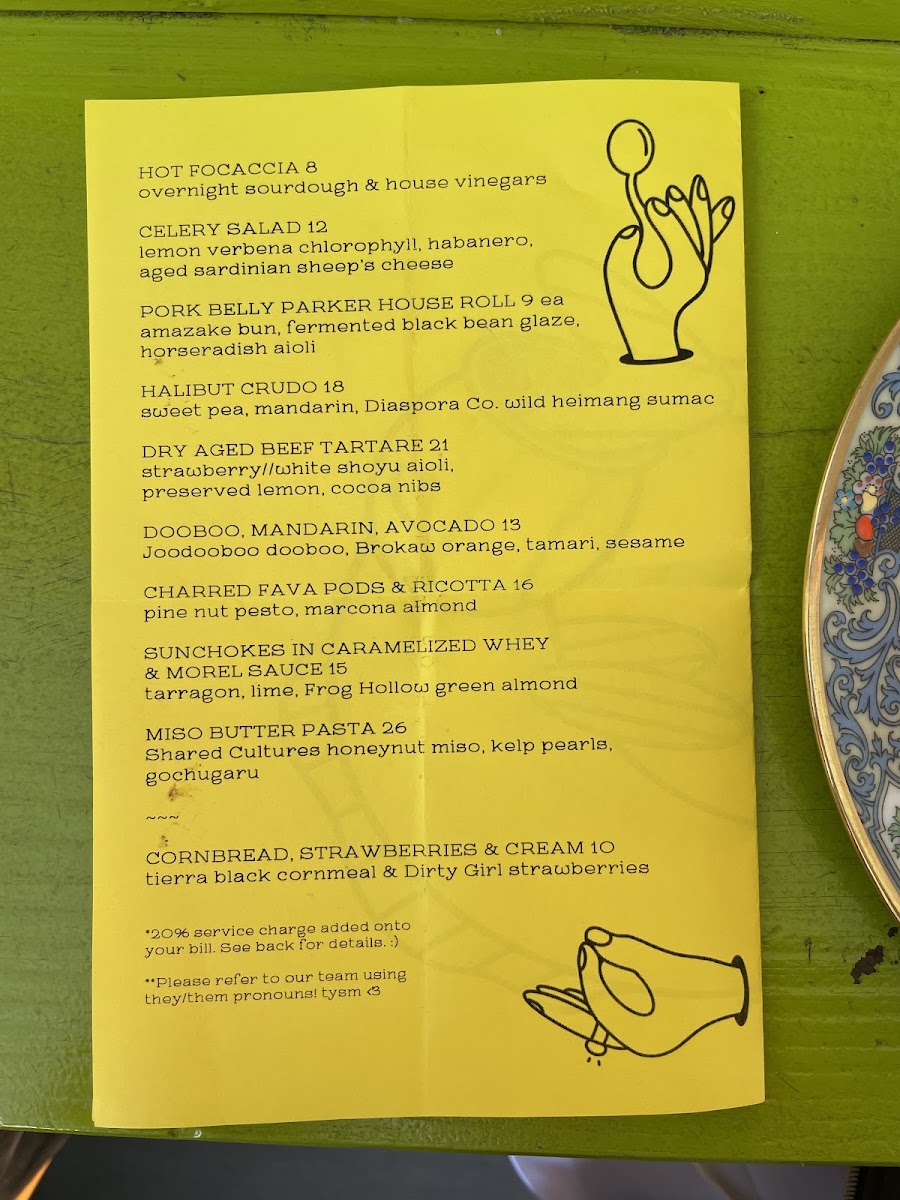 HOT FOCACCIA 8
overnight sourdough & house vinegars
CELERY SALAD 12
lemon verbena chlorophyll, habanero,
aged sardinian sheep's cheese
PORK BELLY PARKER HOUSE ROLL 9 ea
amazake bun, fermented black bean glaze,
horseradish aioli
HALIBUT CRUDO 18
sweet pea, mandarin, Diaspora Co. wild heimang sumac
DRY AGED BEEF TARTARE 21
strawberry//white shoyu aioli,
preserved lemon, cocoa nibs
DOOBOO, MANDARIN, AVOCADO 13
Joodooboo dooboo, Brokaw orange, tamari, sesame
CHARRED FAVA PODS & RICOTTA 16
pine nut pesto, marcona almond
SUNCHOKES IN CARAMELIZED WHEY
& MOREL SAUCE 15
tarragon, lime, Frog Hollow green almond
MISO BUTTER PASTA 26
Shared Cultures honeynut miso, kelp pearls,
gochugaru
~~~
CORNBREAD, STRAWBERRIES & CREAM 10
tierra black cornmeal & Dirty Girl strawberries
*20% service charge added onto
your bill. See back for details. :)
**Please refer to our team using
they/them pronouns! tysm <3